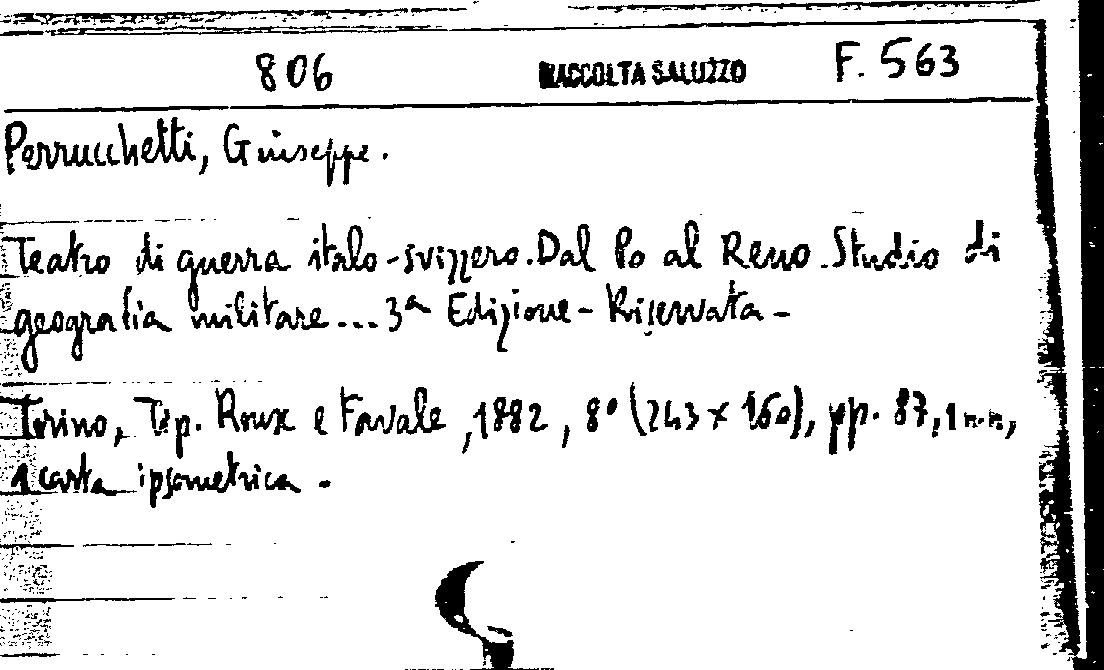 806 RACCOLTA SALUZZO F. 563
Perrucchetti, Giuseppe.
Teatro di guerra italo-svizzero. Dal Po al Reno. Studio di
geografia militare... 3ª Edizione - Riservata -
Torino, Tip. Roux e Favale, 1882, 8° (243 x 160), pp. 87, 1 n.n,
1 carta ipsometrica.